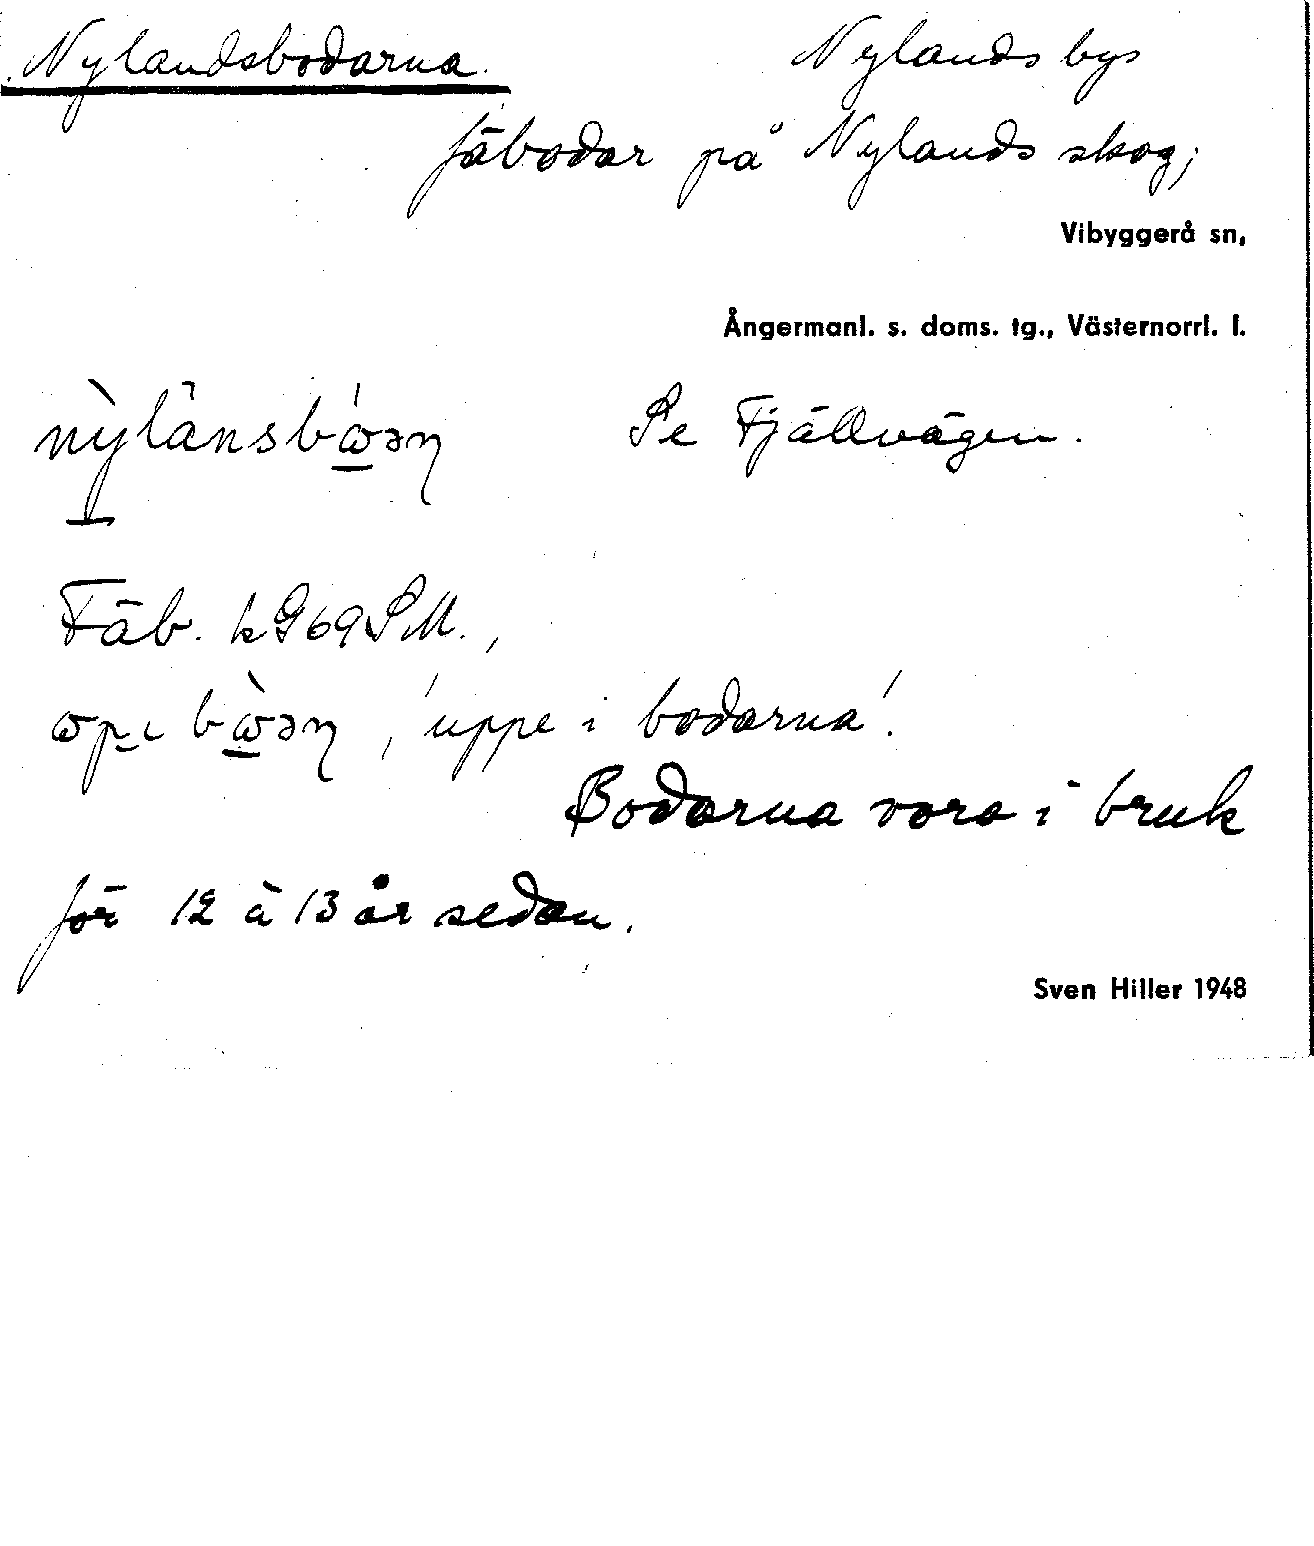 Nylandsbodarna. Nylands bys
fäbodar på Nylands skog;
Vibyggerå sn,
Ångermanl. s. doms. tg., Västernorrl. l.
Se Fjällvägen.
Fäb. k G69 SM.,
'uppe i bodarna'.
Bodarna voro i bruk
för 12 à 13 år sedan.
Sven Hiller 1948